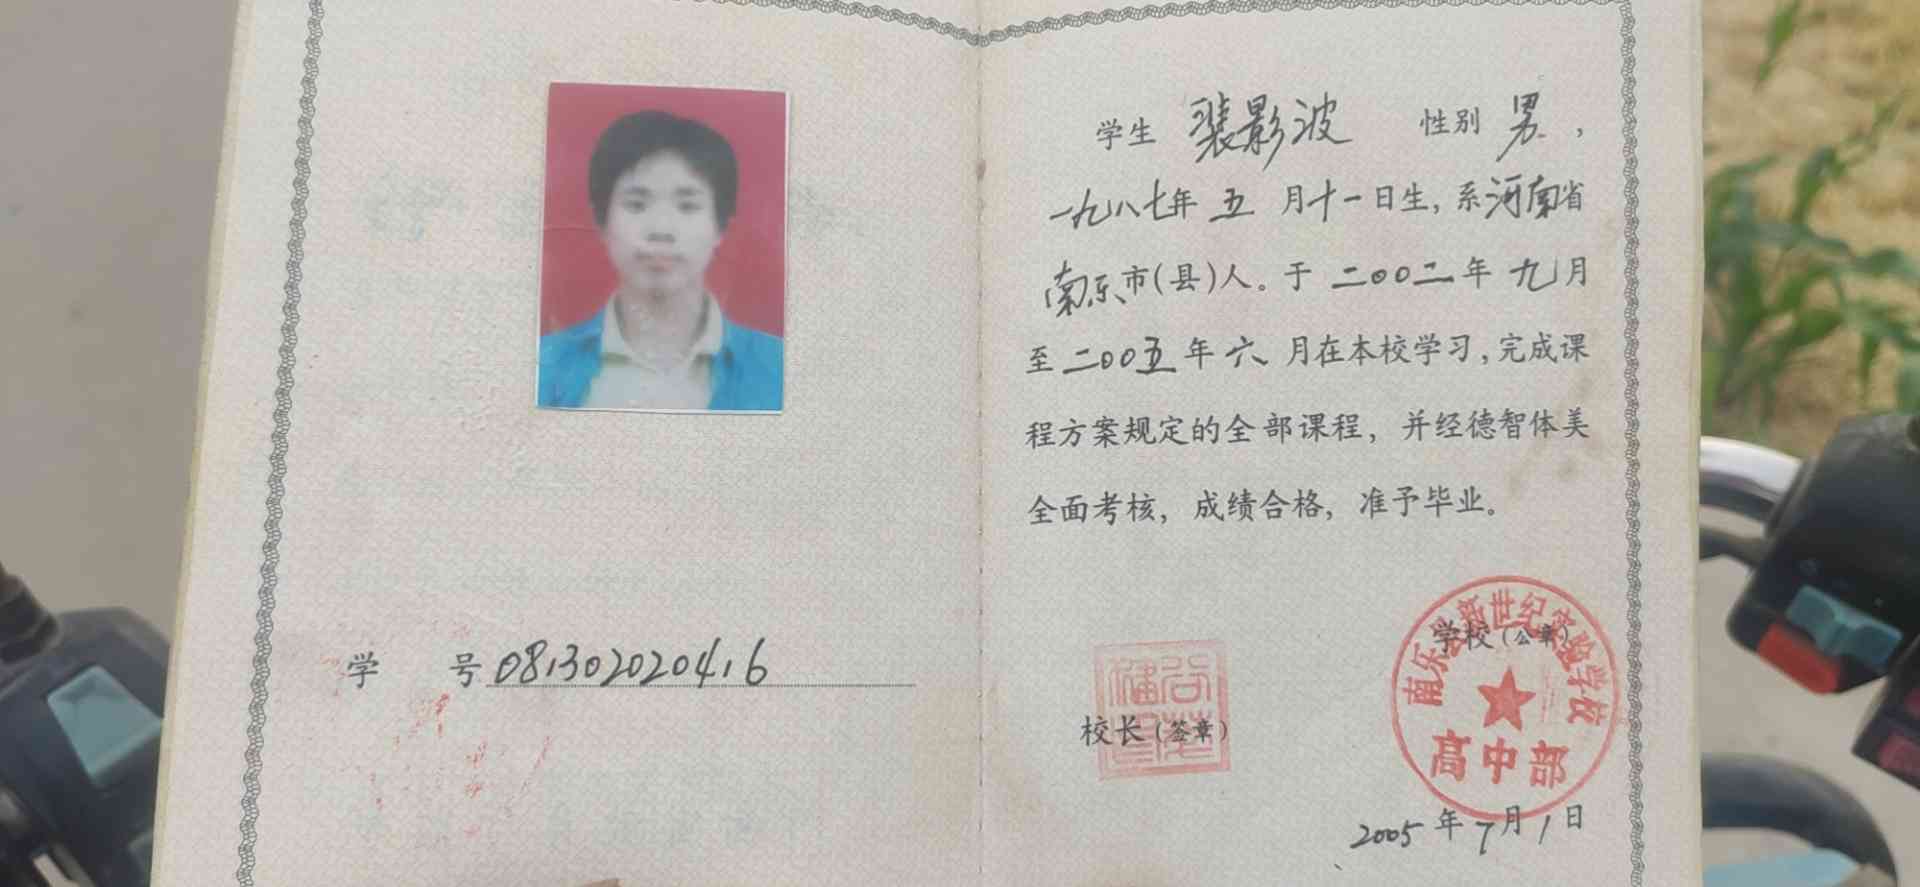 学 号 081302020416
学生 裴影波 性别 男,
一九八七年 五 月十一日生, 系河南省
南乐市(县)人。于 二00二年 九月
至二00五年 六 月在本校学习, 完成课
程方案规定的全部课程, 并经德智体美
全面考核, 成绩合格, 准予毕业。
南乐县新世纪实验学校
学校(公章)
高中部
校长(签章)
2005年7月1日